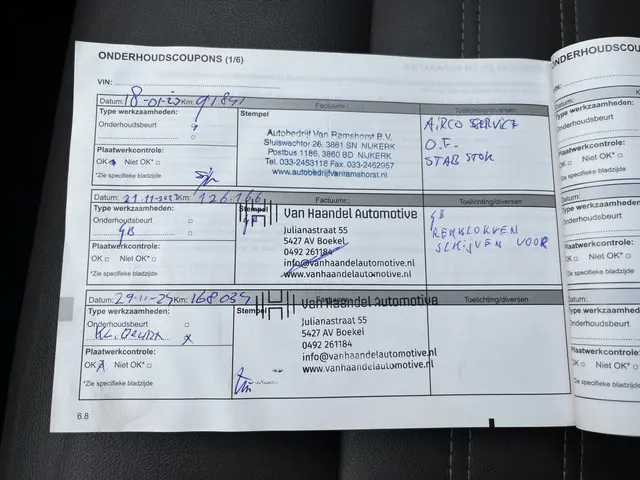 ONDERHOUDSCOUPONS (1/6)
VIN:
Datum: 18-01-23 Km:
Type werkzaamheden:
Onderhoudsbeurt
Plaatwerkcontrole:
OK Niet OK*
*Zie specifieke bladzijde
Factuurnr.:
Stempel
Autobedrijf Van Ramshorst B.V.
Sluiswachter 26, 3861 SN NIJKERK
Postbus 1186, 3860 BD NIJKERK
Tel. 033-2453118 Fax. 033-2462957
www.autobedrijfvanramshorst.nl
Toelichting/diversen
AIRCO SERVICE
STAB STOK
Datum: 21-11-2023 Km: 126.166
Type werkzaamheden:
Onderhoudsbeurt
GB
Plaatwerkcontrole:
OK Niet OK*
*Zie specifieke bladzijde
Stempel
Van Haandel Automotive
Julianastraat 55
5427 AV Boekel
0492 261184
info@vanhaandelautomotive.nl
www.vanhaandelautomotive.nl
Toelichting/diversen
GB
REMBLOKKEN
SCHIJVEN VOOR
Datum: 29-11-24 Km: 168039
Type werkzaamheden:
Onderhoudsbeurt
KL. Beurt x
Plaatwerkcontrole:
OK Niet OK*
*Zie specifieke bladzijde
Factuurnr.:
Stempel
Van Haandel Automotive
Julianastraat 55
5427 AV Boekel
0492 261184
info@vanhaandelautomotive.nl
www.vanhaandelautomotive.nl
Toelichting/diversen
6.8
ONDERHOUDSCOUPONS
VIN:
Datum:
Type werkzaamheden:
Onderhoudsbeurt
Plaatwerkcontrole:
OK Niet OK*
*Zie specifieke bladzijde
Datum:
Type werkzaamheden:
Onderhoudsbeurt
Plaatwerkcontrole:
OK Niet OK*
*Zie specifieke bladzijde
Datum:
Type werkzaamheden:
Onderhoudsbeurt
Plaatwerkcontrole:
OK Niet OK*
*Zie specifieke bladzijde